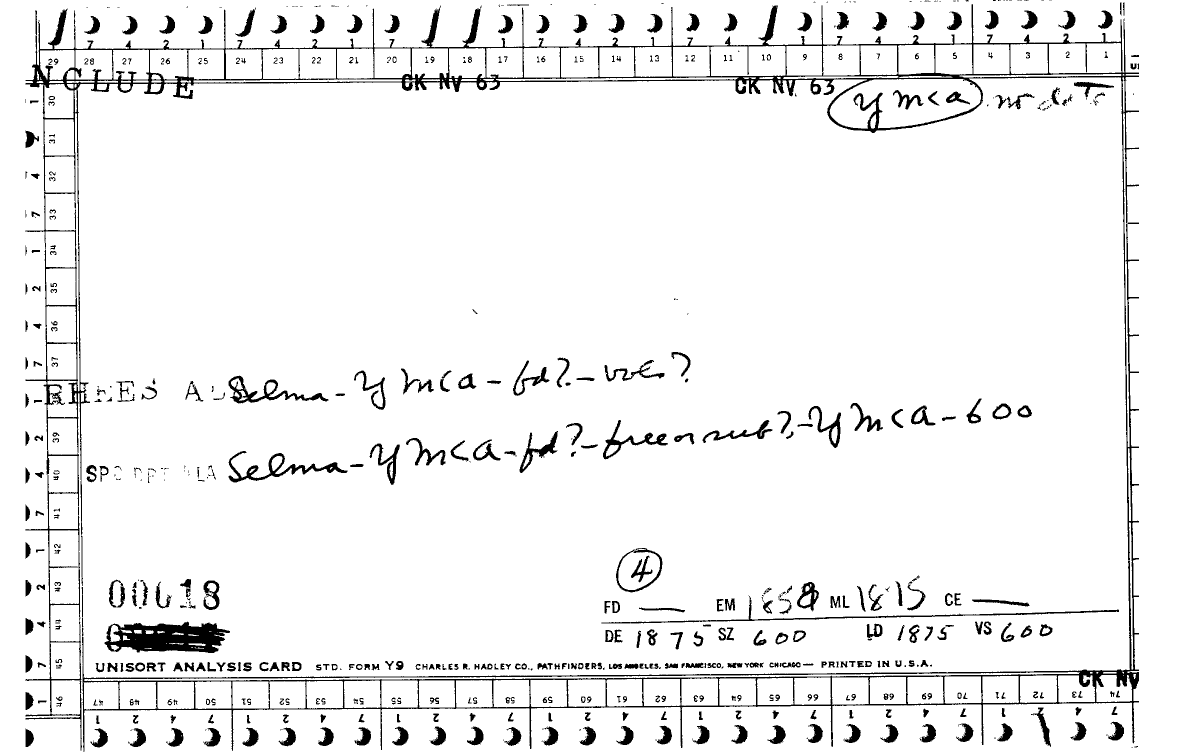 7 4 2 1 7 4 2 1 7 1 7 4 2 1 7 4 2 1 7 4 2 1 7 4 2 1
29 28 27 26 25 24 23 22 21 20 19 18 17 16 15 14 13 12 11 10 9 8 7 6 5 4 3 2 1
NCLUDE CK NV 63 CK NV 63 YMCA no date
1 30
2 31
4 32
7 33
1 34
2 35
4 36
7 37
RHEES ALA Selma - YMCA - fd? - vols?
2 39
SPC DPT ALA Selma - YMCA - fd? - free or sub? - YMCA - 600
4 40
7 41
1 42
4
2 43
00618 FD — EM 1858 ML 1875 CE —
4 44
DE 1875 SZ 600 LD 1875 VS 600
7 45 UNISORT ANALYSIS CARD STD. FORM Y9 CHARLES R. HADLEY CO., PATHFINDERS, LOS ANGELES, SAN FRANCISCO, NEW YORK CHICAGO — PRINTED IN U.S.A.
CK NV
1 46 47 48 49 50 51 52 53 54 55 56 57 58 59 60 61 62 63 64 65 66 67 68 69 70 71 72 73 74
1 2 4 7 1 2 4 7 1 2 4 7 1 2 4 7 1 2 4 7 1 2 4 7 1 2 4 7